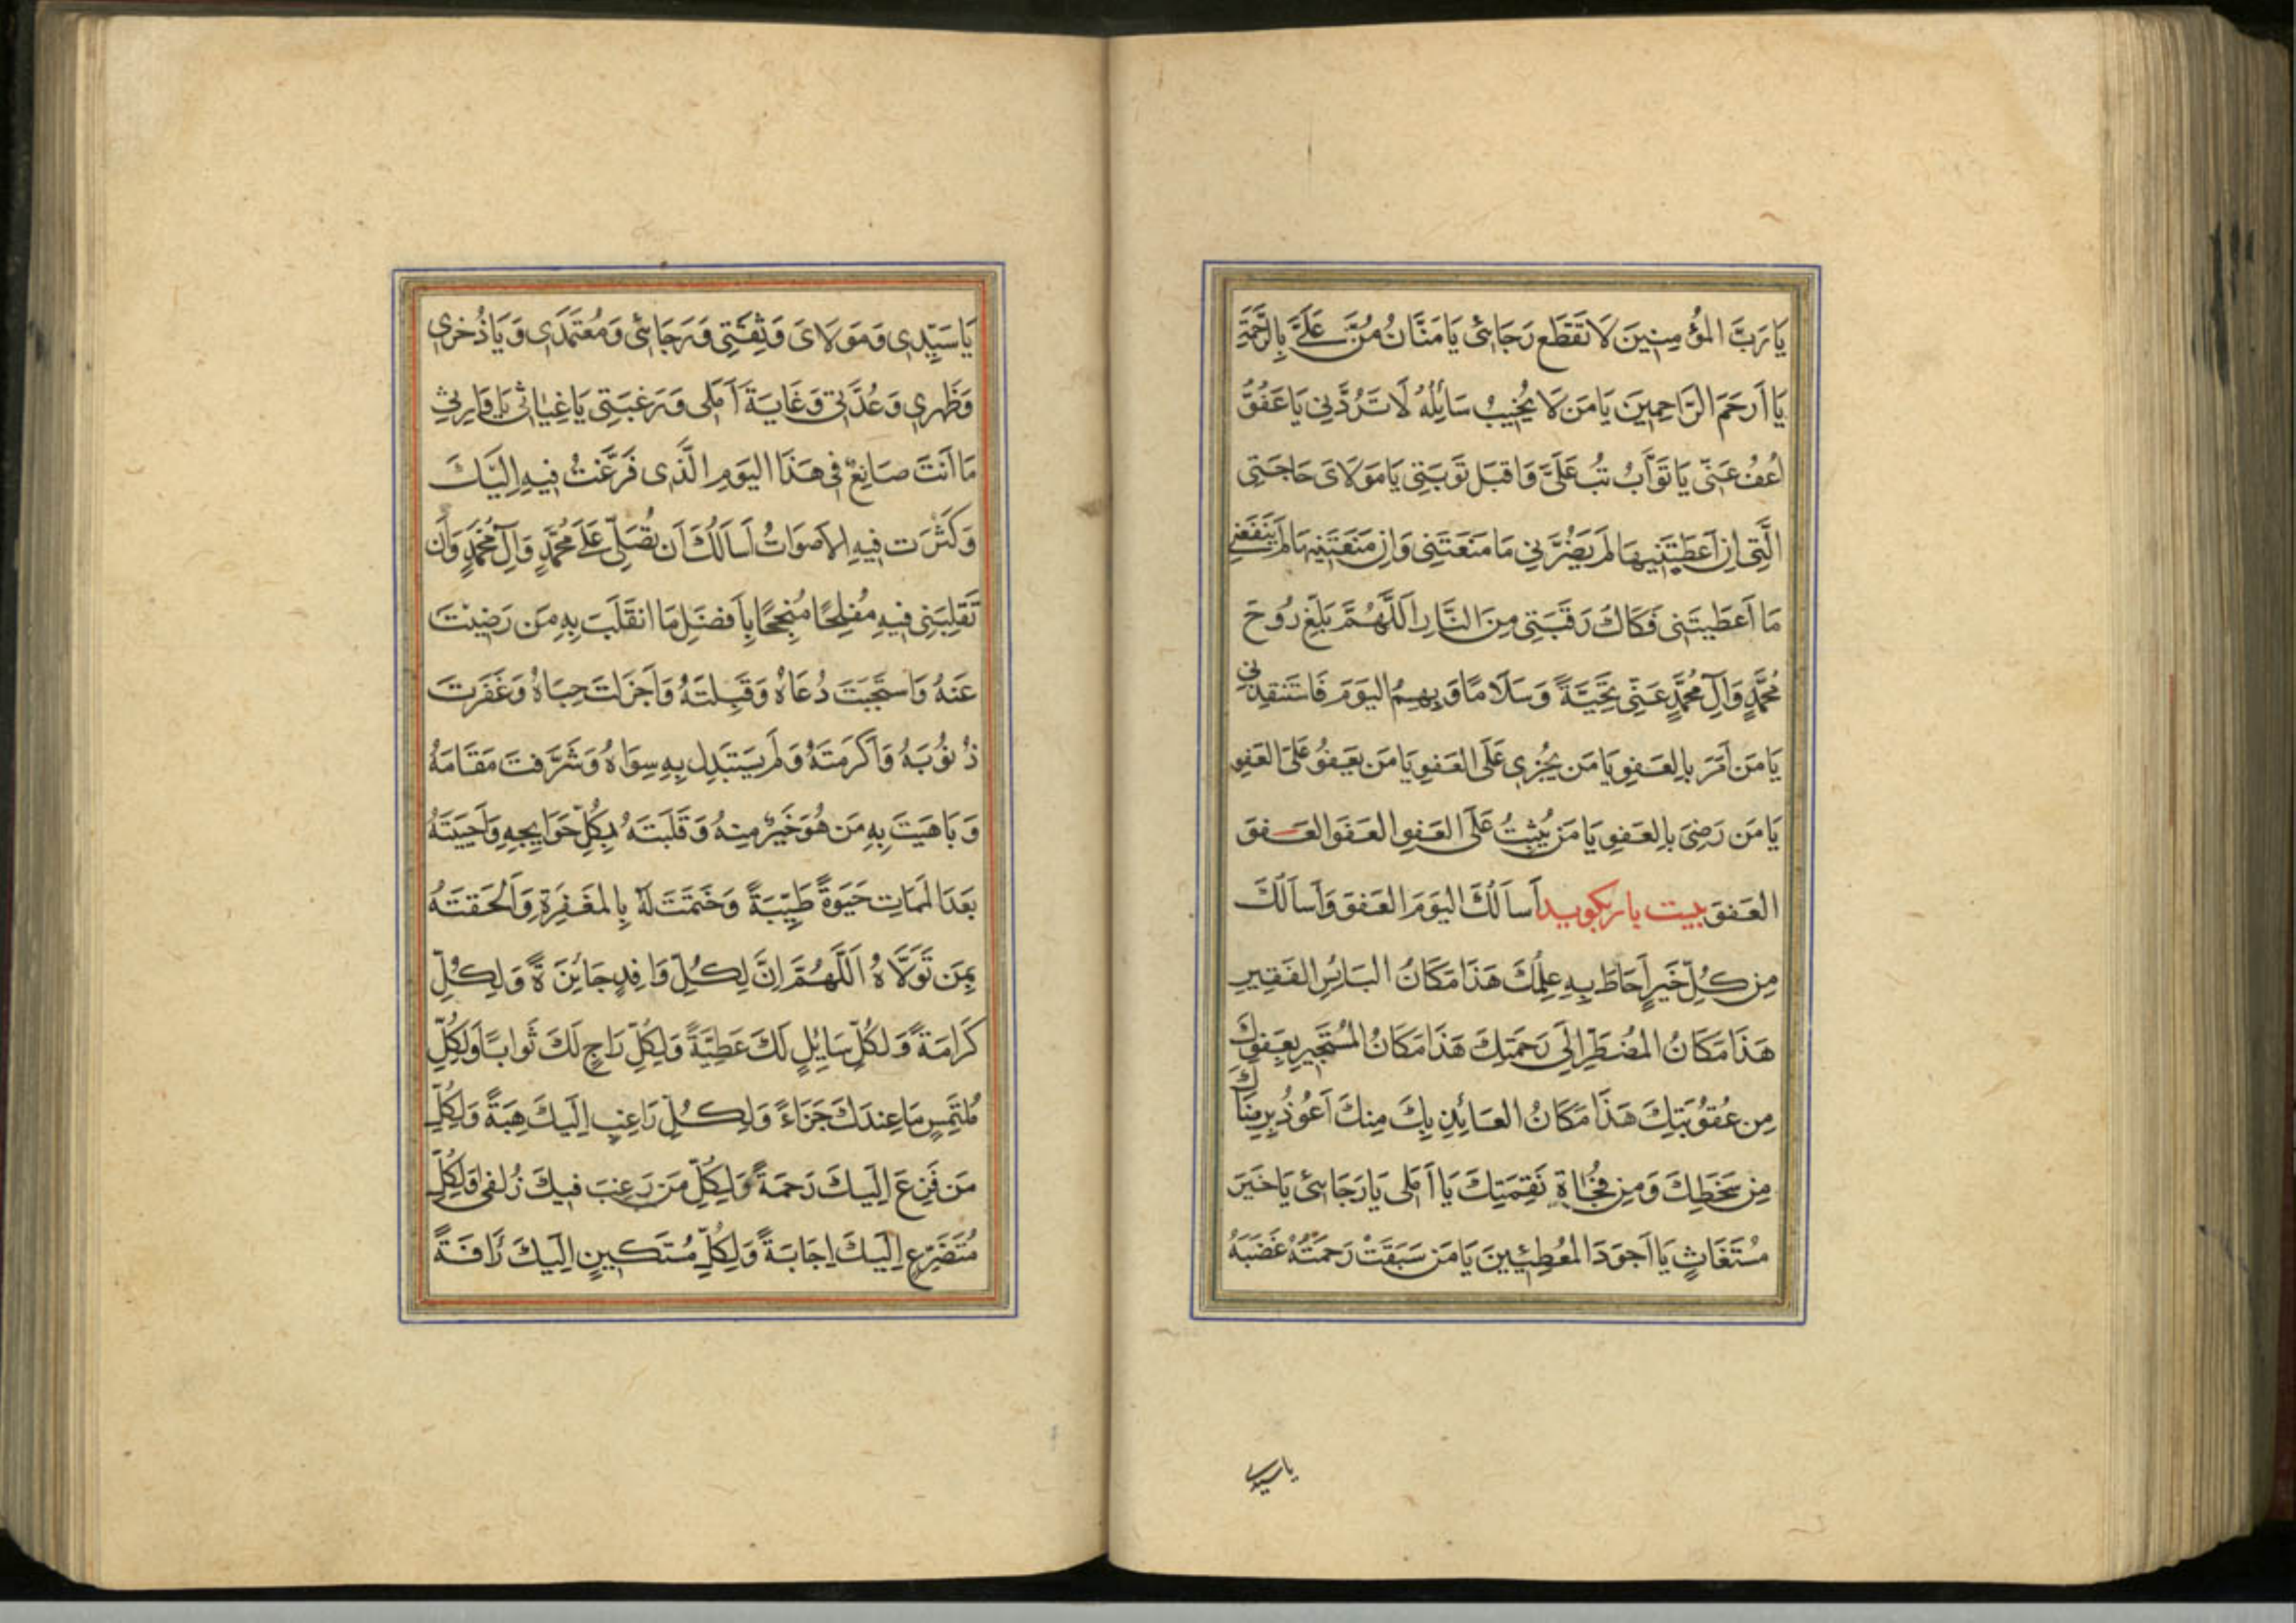 يَا رَبَّ الْمُؤْمِنِينَ لَا تَقْطَعْ رَجَائِي يَا مَنَّانُ مُنَّ عَلَيَّ بِالرَّحْمَةِ
يَا أَرْحَمَ الرَّاحِمِينَ يَا مَنْ لَا يُخَيِّبُ سَائِلَهُ لَا تَرُدَّنِي يَا عَفُوُّ
اُعْفُ عَنِّي يَا تَوَّابُ تُبْ عَلَيَّ وَاقْبَلْ تَوْبَتِي يَا مَوْلَايَ حَاجَتِي
الَّتِي إِنْ أَعْطَيْتَنِيهَا لَمْ يَضُرَّنِي مَا مَنَعْتَنِي وَإِنْ مَنَعْتَنِيهَا لَمْ يَنْفَعْنِي
مَا أَعْطَيْتَنِي فَكَاكَ رَقَبَتِي مِنَ النَّارِ اَللَّهُمَّ بَلِّغْ رُوحَ
مُحَمَّدٍ وَآلِ مُحَمَّدٍ عَنِّي تَحِيَّةً وَسَلَامًا وَبِهِمُ الْيَوْمَ فَاسْتَنْقِذْنِي
يَا مَنْ أَمَرَ بِالْعَفْوِ يَا مَنْ يَجْزِي عَلَى الْعَفْوِ يَا مَنْ يَعْفُو عَلَى الْعَفْوِ
يَا مَنْ رَضِيَ بِالْعَفْوِ يَا مَنْ يُثِيبُ عَلَى الْعَفْوِ الْعَفْوَ الْعَفْوَ
الْعَفْوَ بيست بار بكويد أَسْأَلُكَ الْيَوْمَ الْعَفْوَ وَأَسْأَلُكَ
مِنْ كُلِّ خَيْرٍ أَحَاطَ بِهِ عِلْمُكَ هَذَا مَكَانُ الْبَائِسِ الْفَقِيرِ
هَذَا مَكَانُ الْمُضْطَرِّ إِلَى رَحْمَتِكَ هَذَا مَكَانُ الْمُسْتَجِيرِ بِعَفْوِكَ
مِنْ عُقُوبَتِكَ هَذَا مَكَانُ الْعَائِذِ بِكَ مِنْكَ أَعُوذُ بِرِضَاكَ
مِنْ سَخَطِكَ وَمِنْ فُجْأَةِ نَقِمَتِكَ يَا أَمَلِي يَا رَجَائِي يَا خَيْرَ
مُسْتَغَاثٍ يَا أَجْوَدَ الْمُعْطِيِينَ يَا مَنْ سَبَقَتْ رَحْمَتُهُ غَضَبَهُ
يا سيدى
يَا سَيِّدِي وَمَوْلَايَ وَثِقَتِي وَرَجَائِي وَمُعْتَمَدِي وَيَا ذُخْرِي
وَظَهْرِي وَعُدَّتِي وَغَايَةَ أَمَلِي وَرَغْبَتِي يَا غِيَاثِي يَا وَارِثِي
مَا أَنْتَ صَانِعٌ فِي هَذَا الْيَوْمِ الَّذِي فَزِعْتُ فِيهِ إِلَيْكَ
وَكَثُرَتْ فِيهِ الْأَصْوَاتُ أَسْأَلُكَ أَنْ تُصَلِّيَ عَلَى مُحَمَّدٍ وَآلِ مُحَمَّدٍ وَأَنْ
تَقْلِبَنِي فِيهِ مُفْلِحًا مُنْجِحًا بِأَفْضَلِ مَا انْقَلَبَ بِهِ مَنْ رَضِيتَ
عَنْهُ وَاسْتَجَبْتَ دُعَاهُ وَقَبِلْتَهُ وَأَجْزَلْتَ حِبَاهُ وَغَفَرْتَ
ذُنُوبَهُ وَأَكْرَمْتَهُ وَلَمْ يَسْتَبْدِلْ بِهِ سِوَاهُ وَشَرَّفْتَ مَقَامَهُ
وَبَاهَيْتَ بِهِ مَنْ هُوَ خَيْرٌ مِنْهُ وَقَلَبْتَهُ بِكُلِّ حَوَايِجِهِ وَأَحْيَيْتَهُ
بَعْدَ الْمَمَاتِ حَيَوةً طَيِّبَةً وَخَتَمْتَ لَهُ بِالْمَغْفِرَةِ وَأَلْحَقْتَهُ
بِمَنْ تَوَلَّاهُ اَللَّهُمَّ إِنَّ لِكُلِّ وَافِدٍ جَائِزَةً وَلِكُلِّ
كَرَامَةً وَلِكُلِّ سَائِلٍ لَكَ عَطِيَّةً وَلِكُلِّ رَاجٍ لَكَ ثَوَابًا وَلِكُلِّ
مُلْتَمِسٍ مَا عِنْدَكَ جَزَاءً وَلِكُلِّ رَاغِبٍ إِلَيْكَ هِبَةً وَلِكُلِّ
مَنْ فَزِعَ إِلَيْكَ رَحْمَةً وَلِكُلِّ مَنْ رَغِبَ فِيكَ زُلْفَى وَلِكُلِّ
مُتَضَرِّعٍ إِلَيْكَ إِجَابَةً وَلِكُلِّ مُسْتَكِينٍ إِلَيْكَ رَأْفَةً